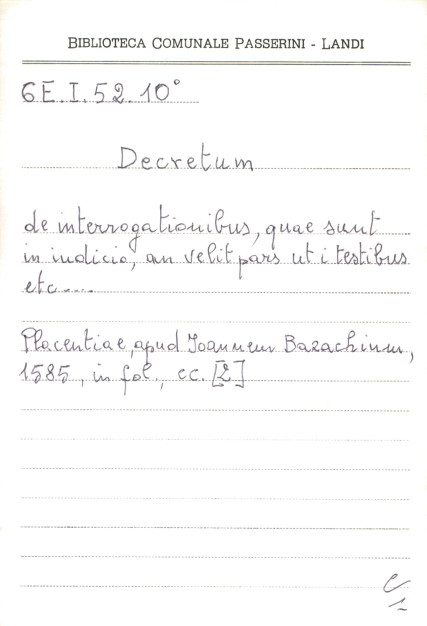 BIBLIOTECA COMUNALE PASSERINI - LANDI
6E.I.52.10°
Decretum
de interrogationibus, quae sunt
in iudicio, an velit pars uti testibus
etc....
Placentiae, apud Joannem Bazachinum,
1585, in fol., cc. [2]